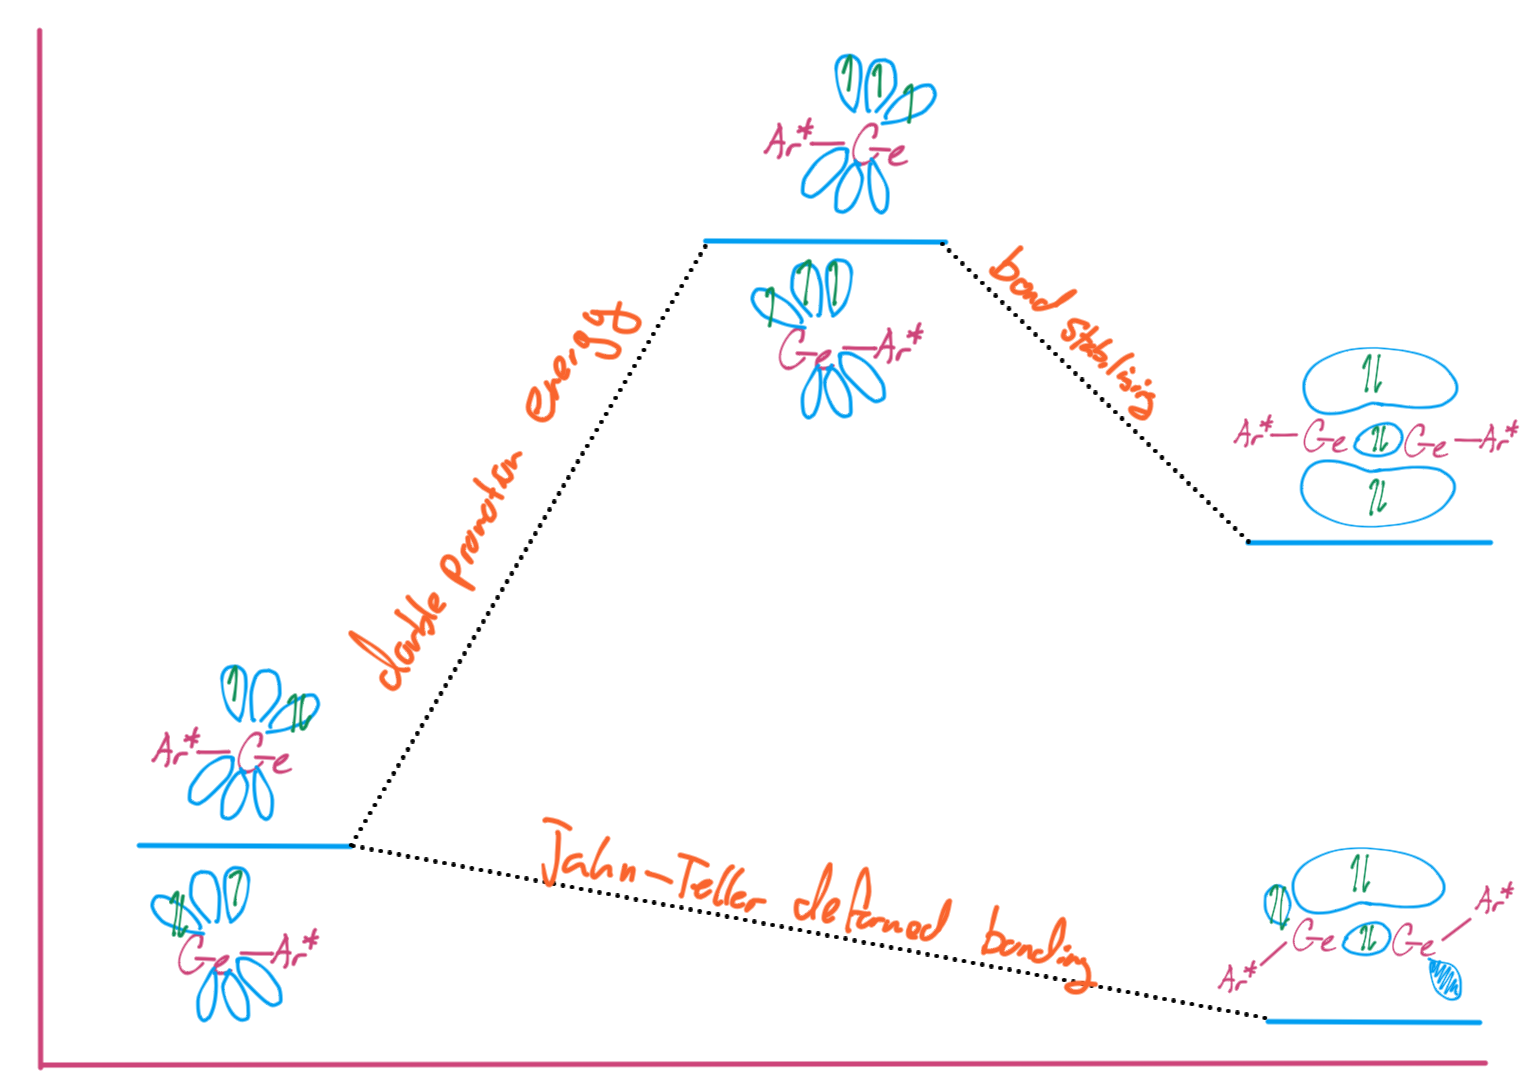 Ar*—Ge
Ge—Ar*
double promotion energy
bond stabilising
Ar*—Ge Ge—Ar*
Ar*—Ge
Ge—Ar*
Jahn-Teller deformed bonding
Ar*
Ge Ge
Ar*